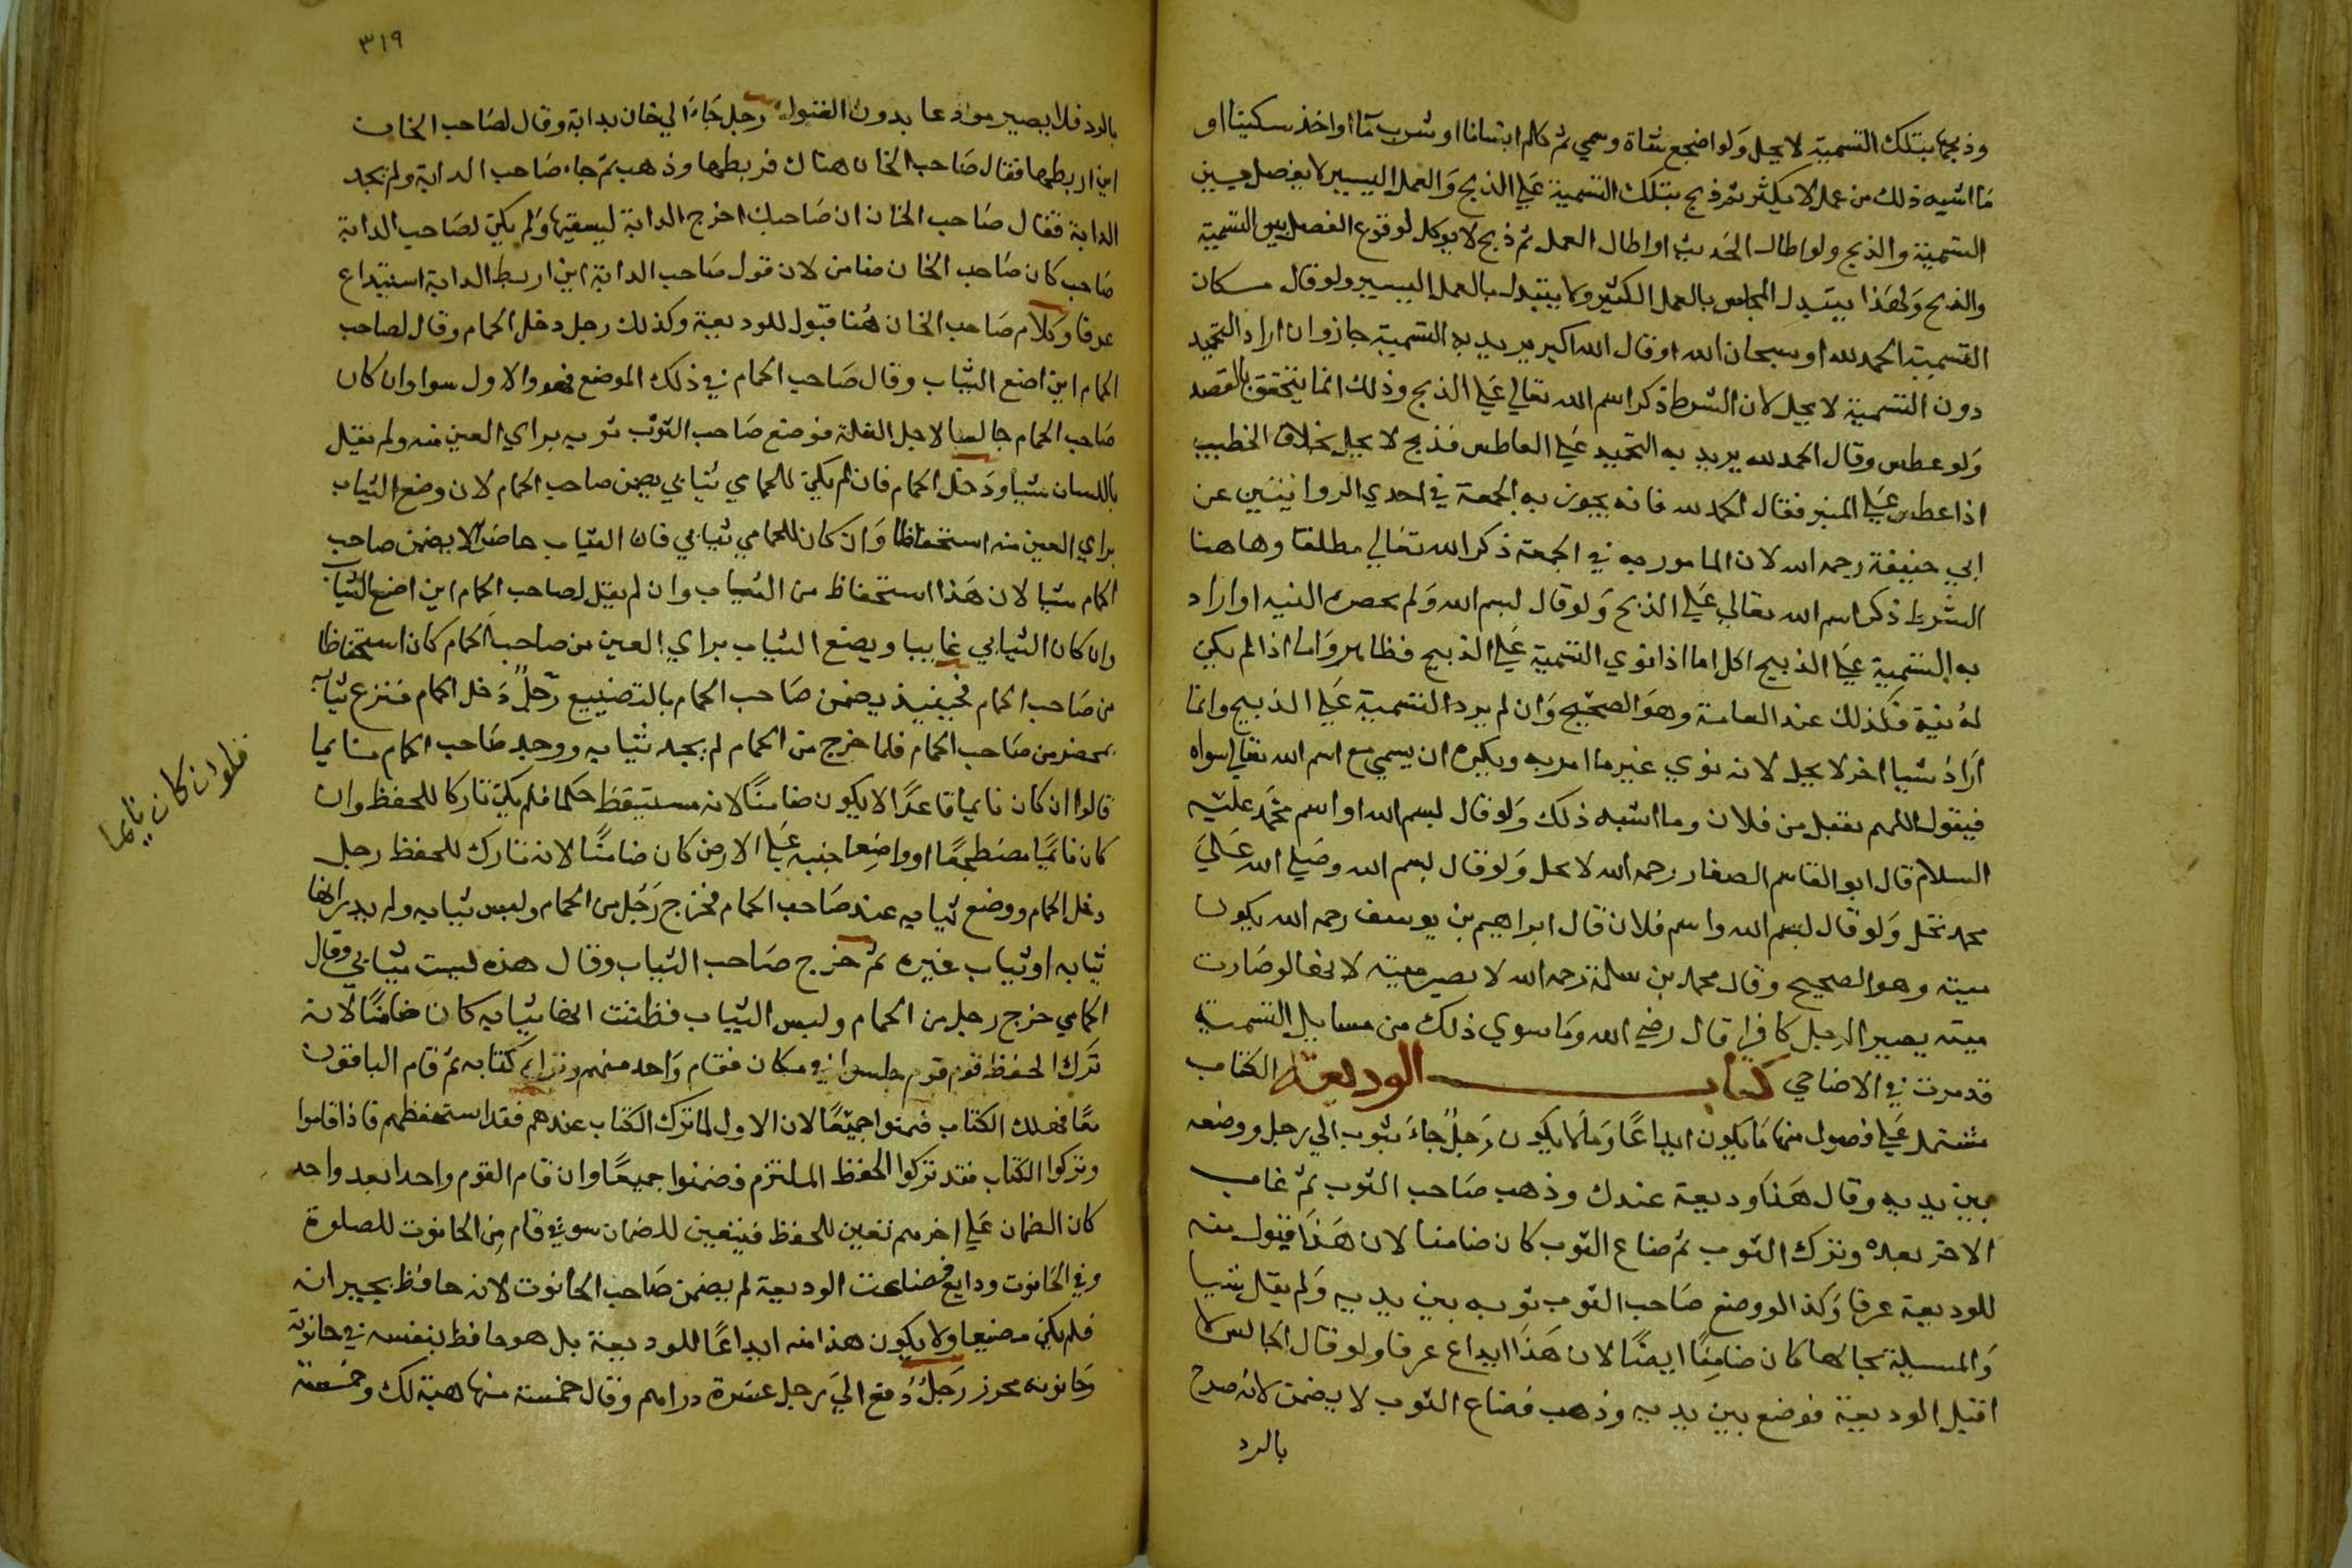 وذبحها بتلك التسمية لا يحل ولو اضجع شاة وسمي ثم كلم انسانا او شرب ماء او اخذ سكينا او
ما اشبه ذلك من عمل لا يكثر ثم ذبح بتلك التسمية علي الذبح والعمل اليسير لا يفصل بين
التسمية والذبح ولو اطال الحديث او اطال العمل ثم ذبح لا يوكل لوقوع الفصل بين التسمية
والذبح ولهذا يتبدل المجلس بالعمل الكثير ولا يتبدل بالعمل اليسير ولو قال مكان
التسمية الحمد لله او سبحان الله او قال الله اكبر يريد به التسمية جاز وان اراد التحميد
دون التسمية لا يحل لان الشرط ذكر اسم الله تعالي علي الذبح وذلك انما يتحقق بالقصد
ولو عطس وقال الحمد لله يريد به التحميد علي العاطس فذبح لا يحل بخلاف الخطيب
اذا عطس علي المنبر فقال الحمد لله فانه يجوز به الجمعة في احدي الروايتين عن
ابي حنيفة رحمه الله لان المامور به في الجمعة ذكر الله تعالي مطلقا وهاهنا
الشرط ذكر اسم الله تعالي علي الذبح ولو قال بسم الله ولم تحضره النيه او اراد
به التسمية علي الذبيح اكل اما اذا نوي التسمية علي الذبيح فظاهر واما اذا لم يكن
له نية فكذلك عند العامة وهو الصحيح وان لم يرد التسمية علي الذبيح وانما
اراد شيا اخر لا يحل لانه نوي غير ما امر به ويكره ان يسمي مع اسم الله تعالي سواه
فيقول اللهم تقبل من فلان وما اشبه ذلك ولو قال بسم الله او اسم محمد عليه
السلام قال ابو القاسم الصفار رحمه الله لا يحل ولو قال بسم الله وصلي الله علي
محمد تحل ولو قال بسم الله واسم فلان قال ابراهيم بن يوسف رحمه الله يكون
ميته وهو الصحيح وقال محمد بن سلمة رحمه الله لا يصير ميتة لانها لو صارت
ميته يصير الرجل كافرا قال رضي الله وما سوي ذلك من مسايل التسمية
قد مرت في الاضاحي كتاب الوديعة الكتاب
مشتمل علي فصول منها ما يكون ايداعا وما لا يكون رجل جاء بثوب الي رجل ووضعه
بين يديه وقال هذا وديعة عندك وذهب صاحب الثوب ثم غاب
الاخر بعده وترك الثوب ثم ضاع الثوب كان ضامنا لان هذا قبول منه
للوديعة عرفا وكذا لو وضع صاحب الثوب ثوبه بين يديه ولم يقل شيا
والمسيلة بحالها كان ضامنا ايضا لان هذا ايداع عرفا ولو قال الجالس لا
اقبل الوديعة فوضع بين يديه وذهب فضاع الثوب لا يضمن لانه صرح
بالرد
٣١٩
بالرد فلا يصير مودعا بدون القبول رجل جاء الي خان بدابة وقال لصاحب الخان
اين اربطها فقال صاحب الخان هناك فربطها وذهب ثم جاء صاحب الدابة ولم يجد
الدابة فقال صاحب الخان ان صاحبك اخرج الدابة ليسقيها ولم يكن لصاحب الدابة
صاحب كان صاحب الخان ضامن لان قول صاحب الدابة اين اربط الدابة استيداع
عرفا وكلام صاحب الخان هنا قبول للوديعة وكذلك رجل دخل الحمام وقال لصاحب
الحمام اين اضع الثياب وقال صاحب الحمام في ذلك الموضع فهو والاول سوا وان كان
صاحب الحمام جالسا لاجل الغلة فوضع صاحب الثوب ثوبه براي العين منه ولم يقل
باللسان شيا ودخل الحمام فان لم يكن للحمامي ثيابي يضمن صاحب الحمام لان وضع الثياب
براي العين منه استحفاظا وان كان للحمامي ثيابي فان الثياب حاضرا لا يضمن صاحب
الحمام شيا لان هذا استحفاظ من الثياب وان لم يقل لصاحب الحمام اين اضع الثياب
وان كان الثيابي غايبا ويضع الثياب براي العين من صاحب الحمام كان استحفاظا
من صاحب الحمام فحينيذ يضمن صاحب الحمام بالتضييع رجل دخل الحمام فنزع ثيابه
بمحضر من صاحب الحمام فلما خرج من الحمام لم يجد ثيابه ووجد صاحب الحمام نايما
قالوا ان كان نايما قاعدا لا يكون ضامنا لانه مستيقظ حكما فلم يكن تاركا للحفظ وان
كان نايما مضطجعا او واضعا جنبه علي الارض كان ضامنا لانه تارك للحفظ رجل
دخل الحمام ووضع ثيابه عند صاحب الحمام فخرج رجل من الحمام ولبس ثيابه ولم يدر انها
ثيابه او ثياب غيره ثم خرج صاحب الثياب وقال هذه ليست ثيابي وقال
الحمامي خرج رجل من الحمام ولبس الثياب فظننت انها ثيابه كان ضامنا لانه
ترك الحفظ قوم جلسوا في مكان فقام واحد منهم وترك كتابه ثم قام الباقون
معا فهلك الكتاب ضمنوا جميعا لان الاول لما ترك الكتاب عندهم فقد استحفظهم فاذا قاموا
وتركوا الكتاب فقد تركوا الحفظ الملتزم فضمنوا جميعا وان قام القوم واحدا بعد واحد
كان الضمان علي اخرهم تعين للحفظ فيتعين للضمان سوقي قام من الحانوت للصلوة
وفي الحانوت ودايع فضاعت الوديعة لم يضمن صاحب الحانوت لانه حافظ بجيرانه
فلم يكن مضيعا ولا يكون هذا منه ايداعا للوديعة بل هو حافظ بنفسه في حانوته
وحانوته محرز رجل دفع الي رجل عشرة دراهم وقال خمسة منها هبة لك وخمسة
فلو ان كان نايما